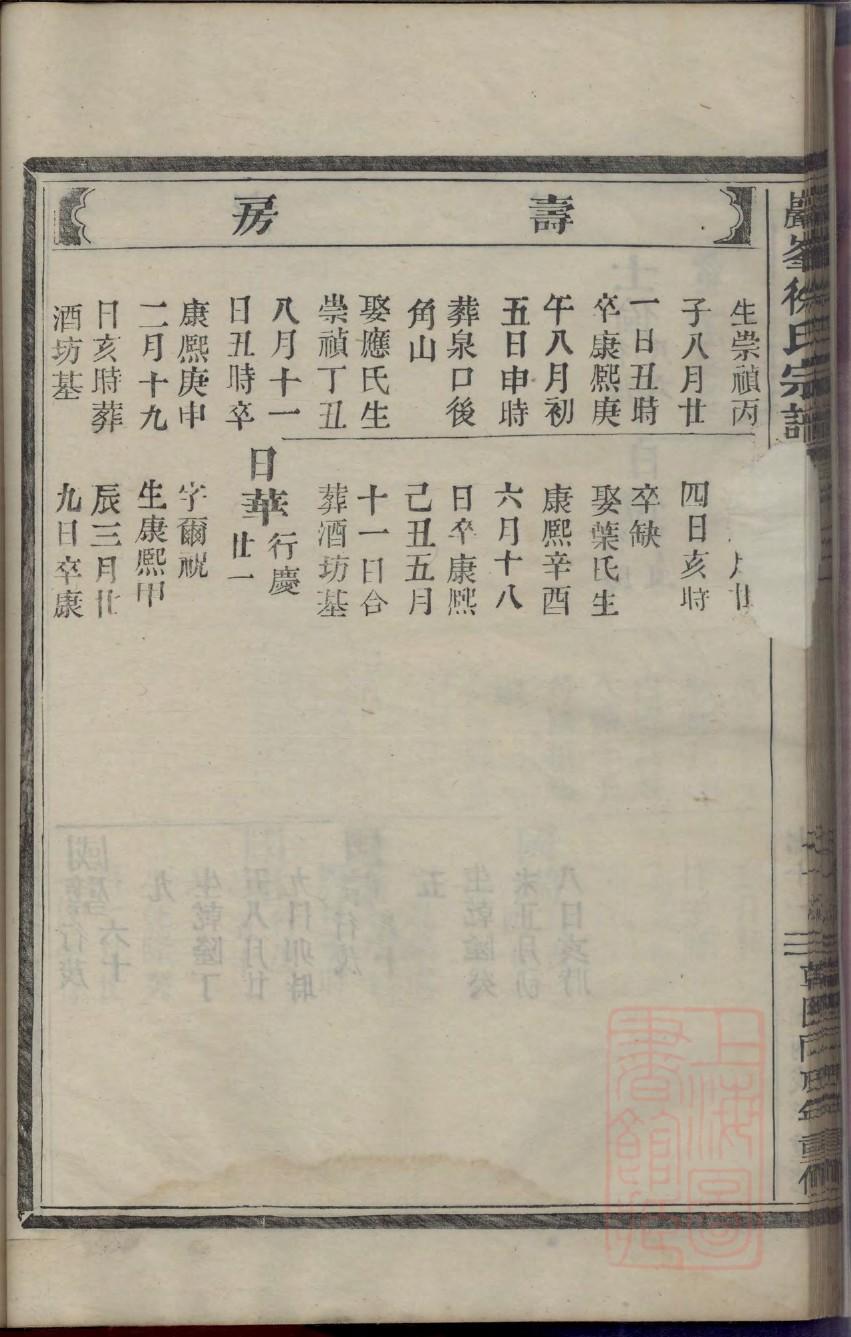 壽房
生崇禎丙
子八月廿
一日丑時
卒康熙庚
午八月初
五日申時
葬泉口後
角山
娶應氏生
崇禎丁丑
八月十一
日丑時卒
康熙庚申
二月十九
日亥時葬
酒坊基
月廿
四日亥時
卒缺
娶葉氏生
康熙辛酉
六月十八
日卒康熙
己丑五月
十一日合
葬酒坊基
日華行慶
廿一
字爾祝
生康熙甲
辰三月廿
九日卒康
徐氏宗譜
重修
上海圖
書館藏